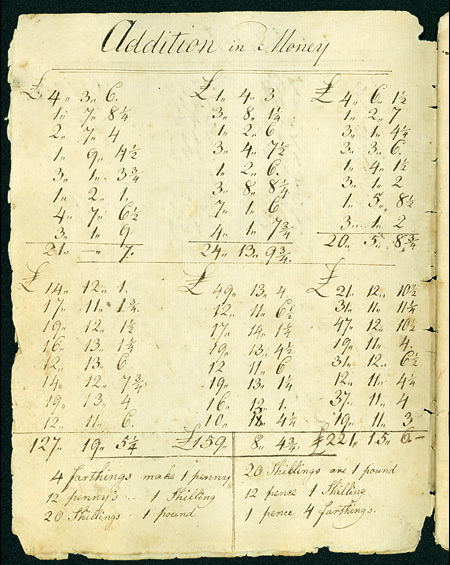 Addition in Money
£ 4,, 3,, 6
1,, 7,, 8¼
2,, 7,, 4
1,, 9,, 4½
3,, 1,, 3¾
1,, 2,, 1
4,, 7,, 6½
3,, 1,, 9
21,, – ,, 7
£ 1,, 4,, 3
3,, 8,, 1¼
1,, 2,, 6
3,, 4,, 7½
1,, 2,, 6
3,, 8,, 8¼
7,, 1,, 6
4,, 1,, 7¾
24,, 13,, 9¾
£ 4,, 6,, 1½
1,, 2,, 7
3,, 1,, 4¼
3,, 3,, 6
1,, 4,, 1½
3,, 1,, 2
1,, 5,, 8½
3,, 1,, 2
20,, 5,, 8¾
£ 14,, 12,, 1
17,, 11,, 1¾
19,, 12,, 1½
16,, 13,, 1¼
12,, 13,, 6
14,, 12,, 7¾
19,, 13,, 4
12,, 11,, 6
127,, 19,, 5¼
£ 49,, 13,, 4
12,, 11,, 6½
17,, 14,, 1¼
19,, 13,, 4½
12,, 11,, 6
19,, 13,, 1¼
16,, 12,, 1
10,, 18,, 4¼
£159,, 8,, 4¾
£ 21,, 12,, 10½
31,, 11,, 11¼
47,, 12,, 10½
19,, 11,, 4
31,, 12,, 6½
12,, 11,, 4¼
37,, 11,, 4
19,, 11,, 3
£221,, 15,, 6
4 farthings make 1 penny
12 penny's 1 Shilling
20 Shillings 1 pound
20 Shillings are 1 pound
12 pence 1 Shilling
1 pence 4 farthings